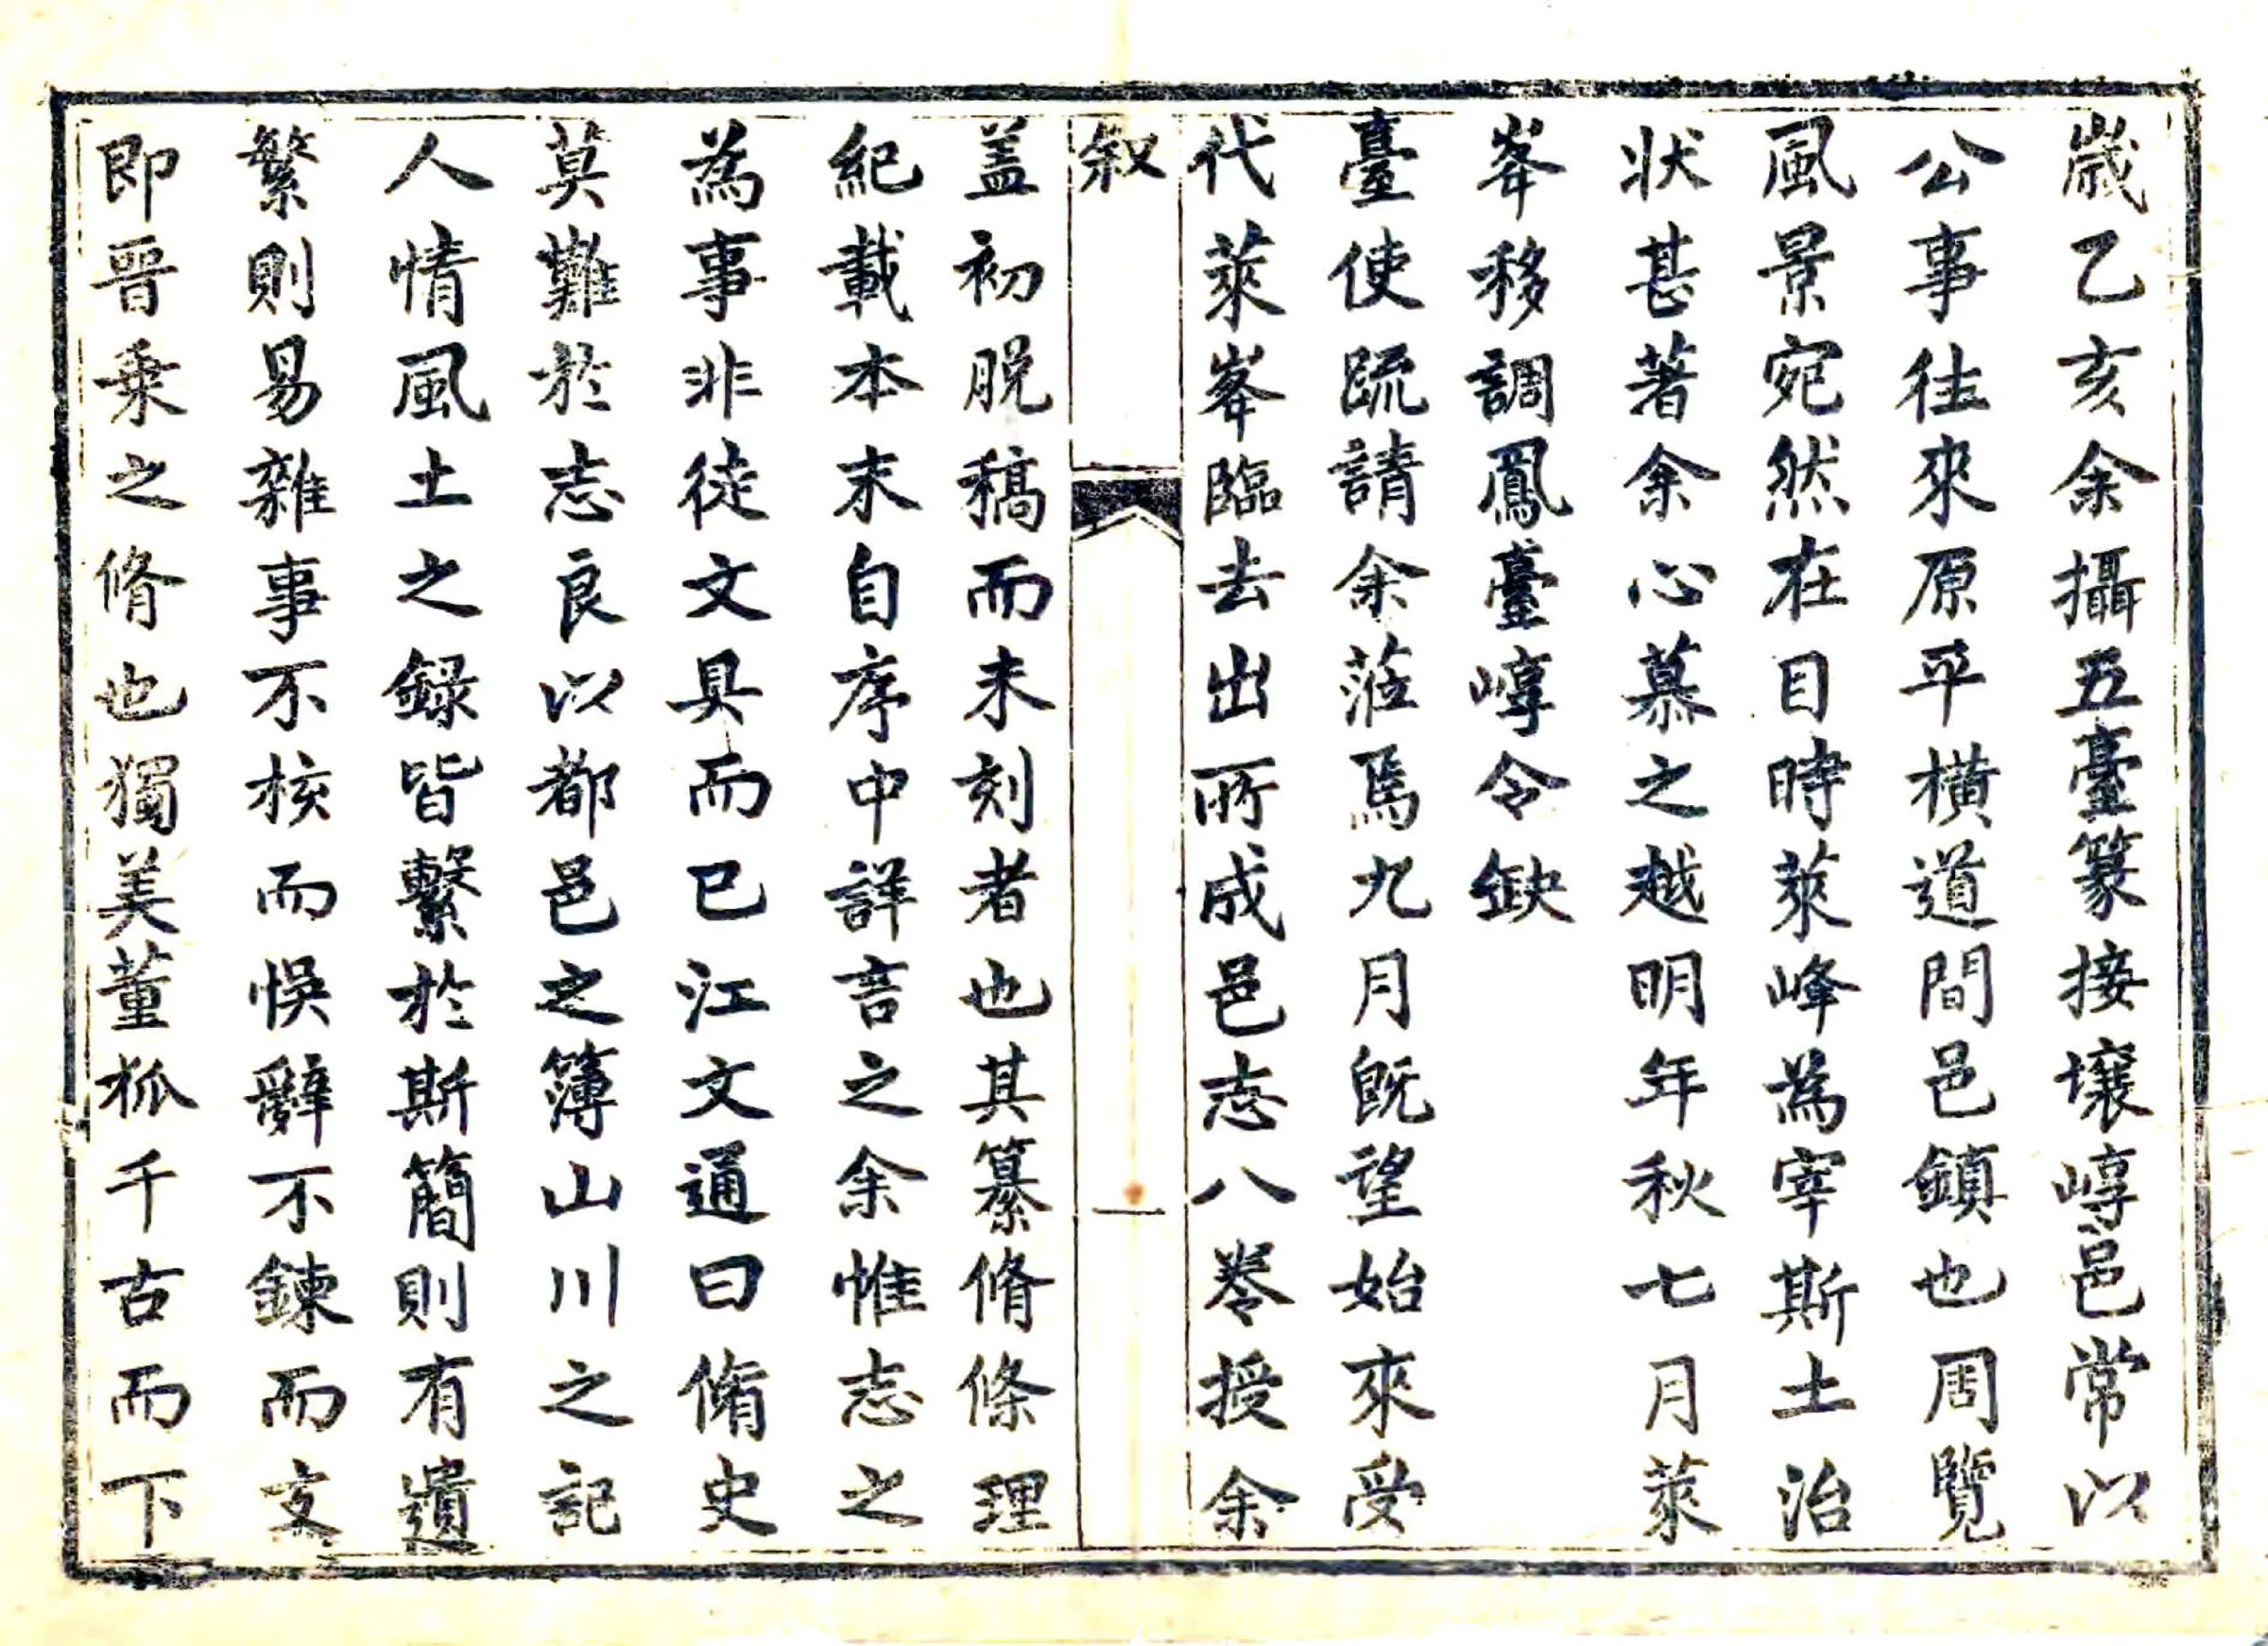 歲乙亥余攝五臺篆接壤崞邑常以
公事往來原平橫道間邑鎮也周覽
風景宛然在目時萊峰為宰斯土治
狀甚著余心慕之越明年秋七月萊
峯移調鳳臺崞令缺
臺使疏請余蒞焉九月既望始來受
代萊峯臨去出所成邑志八卷授余
叙
一
盖初脫稿而未刻者也其纂脩條理
紀載本末自序中詳言之余惟志之
為事非徒文具而已江文通曰脩史
莫難於志良以都邑之簿山川之記
人情風土之録皆繫於斯簡則有遺
繁則易雜事不核而悞辭不鍊而支
即晉乗之脩也獨美董狐千古而下